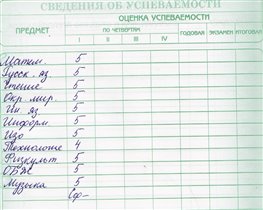 СВЕДЕНИЯ ОБ УСПЕВАЕМОСТИ
ПРЕДМЕТ
ОЦЕНКА УСПЕВАЕМОСТИ
ПО ЧЕТВЕРТЯМ
ГОДОВАЯ
ЭКЗАМЕН
ИТОГОВАЯ
I II III IV
Матем. 5
Русск. яз 5
Чтение 5
Окр. мир. 5
Ин. яз 5
Информ. 5
Изо 5
Технология 4
Физкульт 5
ОБЖ 5
Музыка 5